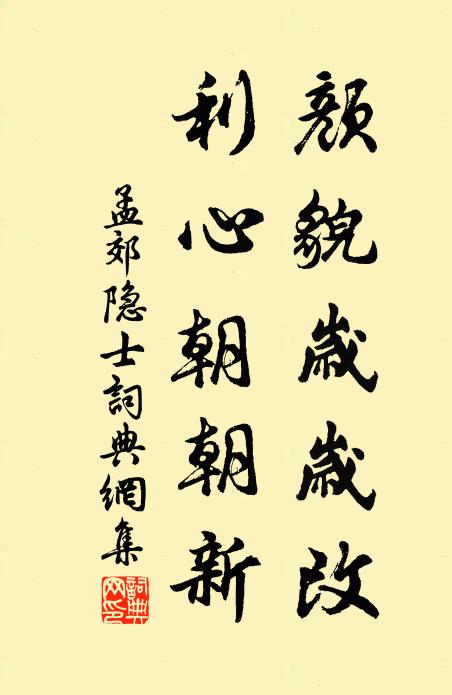 顏貌歲歲改
利心朝朝新
孟郊隐士詞典網集
詞典
网印